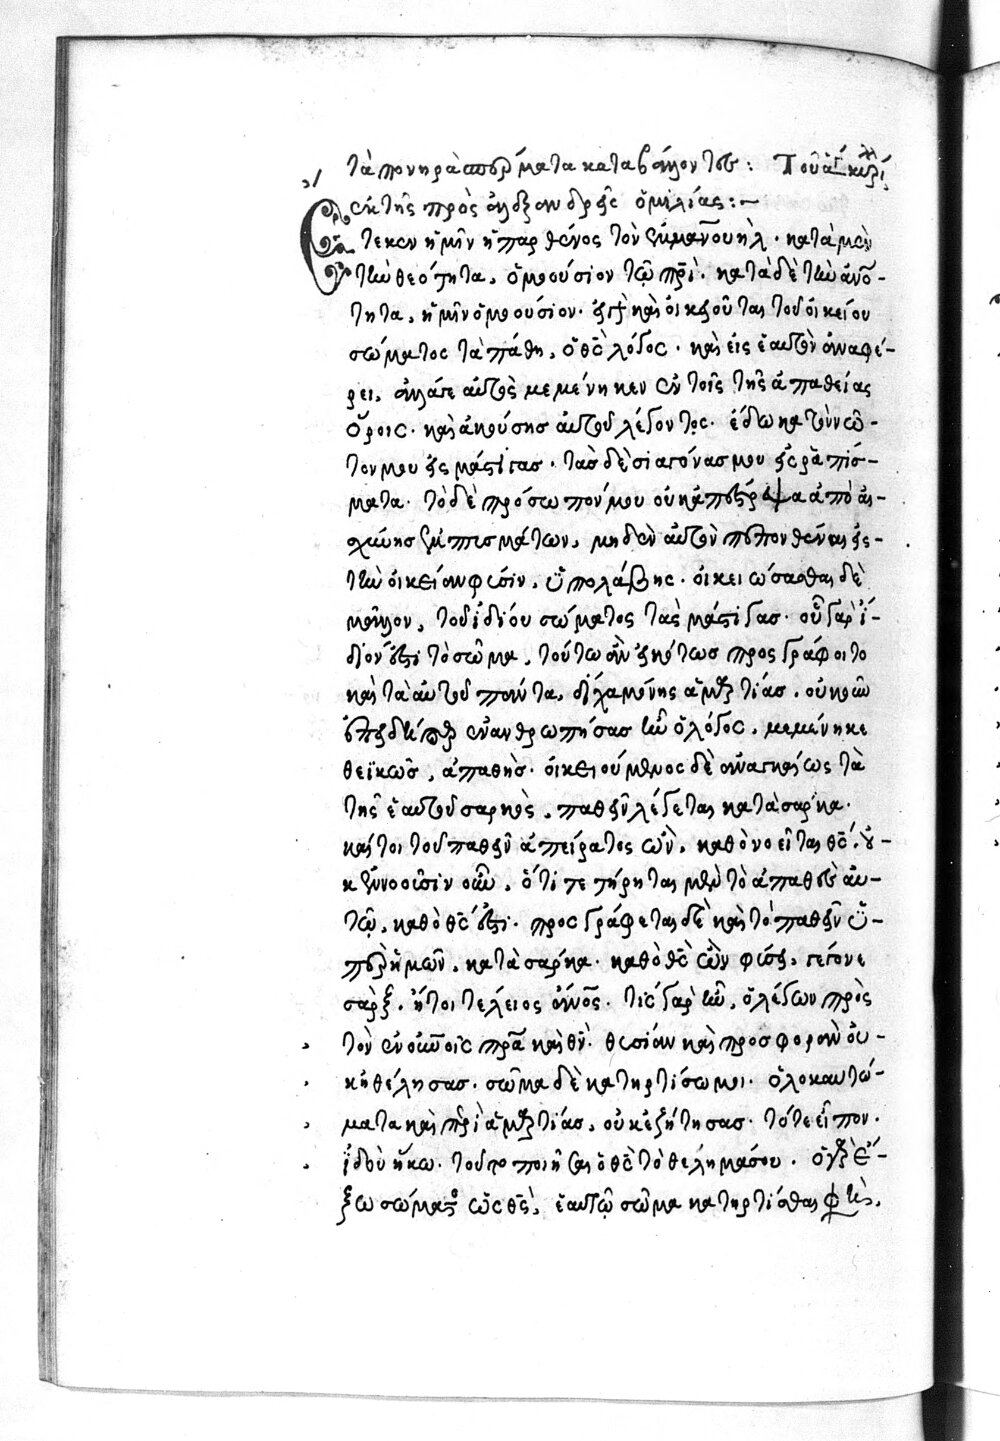 τὰ πονηρὰ σπέρματα καταβάλλοντος: Τοῦ ἁγ κυρί
ἐκ τῆς πρὸς ἀλεξανδρεῖς ὁμιλίας:~
Ἔτεκεν ἡμῖν ἡ παρθένος τὸν ἐμμανουὴλ· κατὰ μὲν
τὴν θεότητα, ὁμοούσιον τῷ πρὶ· κατὰ δὲ τὴν ἀνό-
τητα, ἡμῖν ὁμοούσιον· καὶ οἰκειοῦται τοῦ οἰκείου
σώματος τὰ πάθη, ὁ θς λόγος· καὶ εἰς ἑαυτὸν ἀναφέ-
ρει, ἀλλά γε αὐτὸς μεμένηκεν ἐν τοῖς τῆς ἀπαθείας
ὅροις· καὶ ἀκούσῃς αὐτοῦ λέγοντος· ἔδωκα τὸν νῶ-
τον μου εἰς μάστιγας· τὰς δὲ σιαγόνας μου εἰς ῥαπίσ-
ματα· τὸ δὲ πρόσωπόν μου οὐκ ἀπέστρεψα ἀπὸ αἰ-
σχύνης ἐμπτυσμάτων, μηδὲν αὐτὸν πεπονθέναι εἰς
τὴν οἰκείαν φύσιν, ὑπολάβῃς· οἰκειώσασθαι δὲ
μᾶλλον, τοῦ ἰδίου σώματος τὰς μάστιγας· οὗ γὰρ ἴ-
διόν ἐστι τὸ σῶμα, τούτω ἂν εἰκότως προσγράφοιτο
καὶ τὰ αὐτοῦ πάντα, δίχα μόνης ἁμαρτίας· οὐκοῦν
ἐπειδήπερ ἐνανθρωπήσας ἦν ὁ λόγος, μεμένηκε
θεϊκῶς, ἀπαθής· οἰκειούμενος δὲ ἀναγκαίως τὰ
τῆς ἑαυτοῦ σαρκὸς, παθεῖν λέγεται κατὰ σάρκα·
καίτοι τοῦ παθεῖν ἀπείρατος ὢν, καθὸ νοεῖται θς· οὐ-
κ ἐννοοῦσιν οὖν, ὅτι τετήρηται μὲν τὸ ἀπαθὲς αὐ-
τῷ, καθὸ θς ἐστι· προσγράφεται δὲ καὶ τὸ παθεῖν ὑ-
πὲρ ἡμῶν, κατὰ σάρκα· καθὸ θς ὢν φύσει, γέγονε
σὰρξ, ἤτοι τέλειος ἄνος· τίς γὰρ ἦν, ὁ λέγων πρὸς
τὸν ἐν οὐνοῖς πρα καὶ θν· θυσίαν καὶ προσφορὰν οὐ-
κ ἠθέλησας· σῶμα δὲ κατηρτίσω μοι· ὁλοκαυτώ-
ματα καὶ περὶ ἁμαρτίας, οὐκ ἐζήτησας· τότε εἶπον·
ἰδοὺ ἥκω· τοῦ ποιῆσαι ὁ θς τὸ θέλημά σου· ὁ γὰρ ἔ-
ξω σώματος ὡς θς, ἑαυτῷ σῶμα κατηρτίσθαι φησὶ,